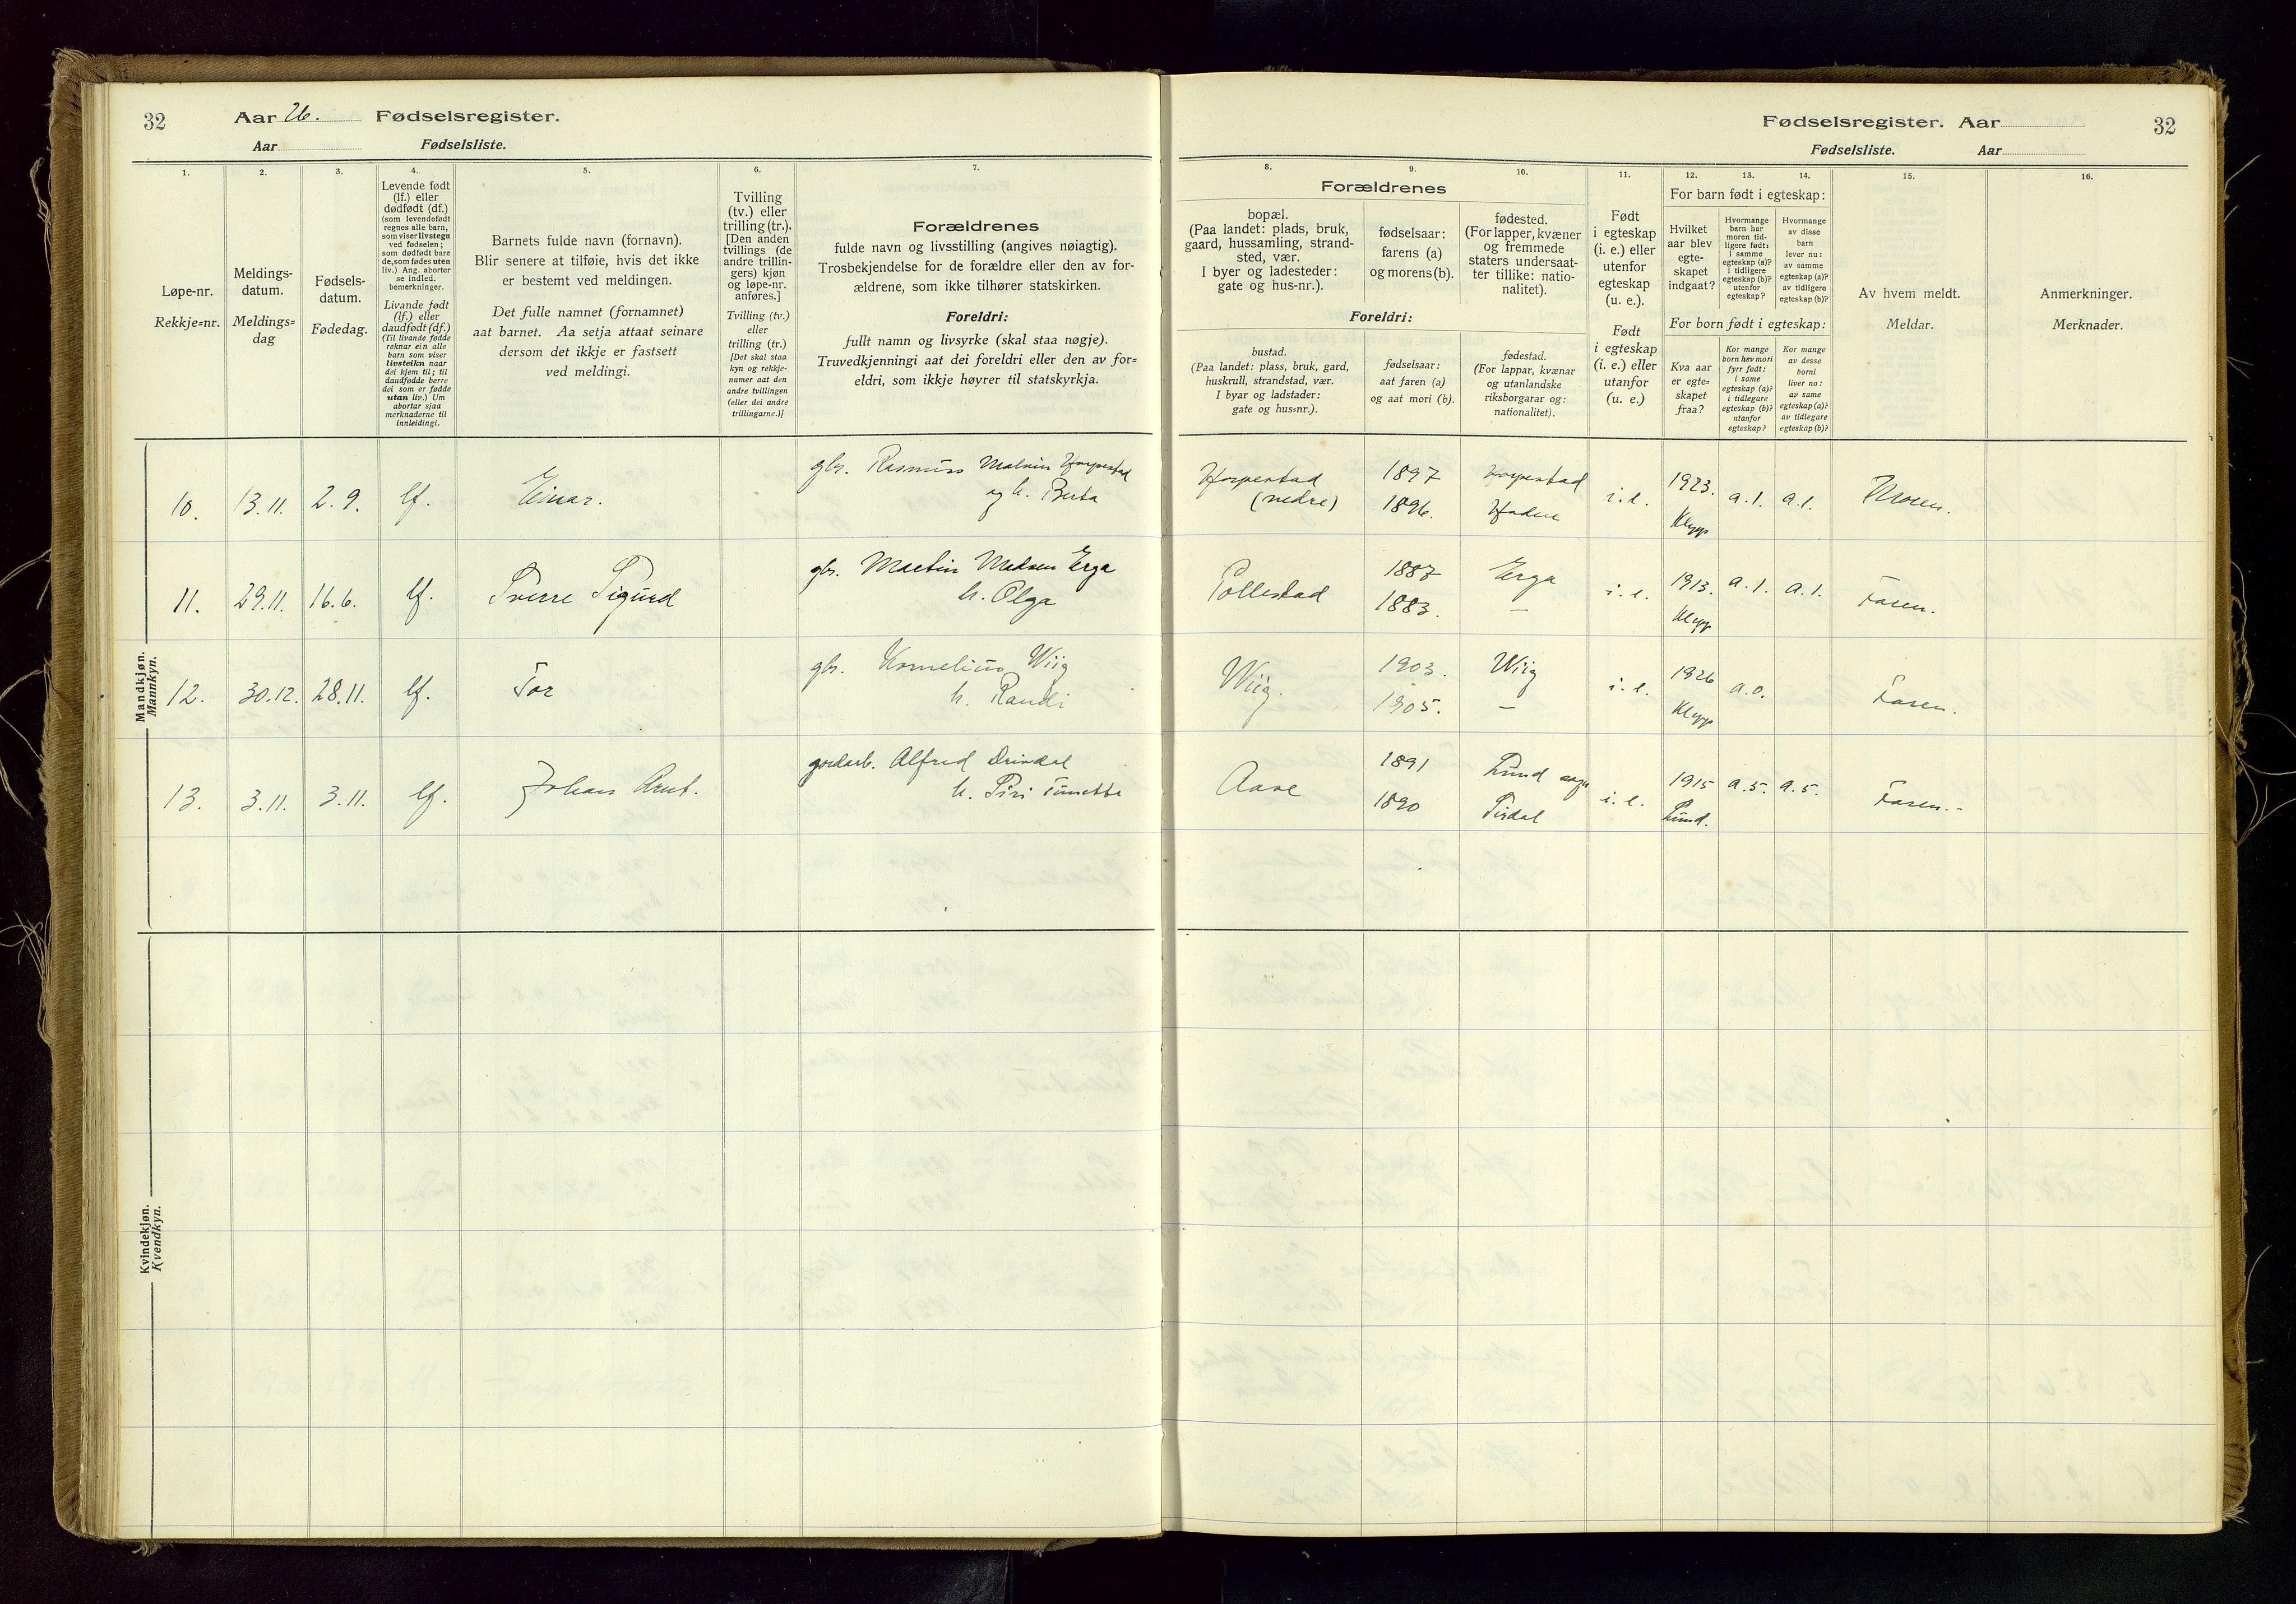 32
Aar 26. Fødselsregister.
Aar Fødselsliste.
1.
2.
3.
4.
5.
6.
7.
Løpe-nr.
Rekkje=nr.
Meldings-
datum.
Meldings=
dag
Fødsels-
datum.
Fødedag.
Levende født
(lf.) eller
dødfødt (df.)
(som levendefødt
regnes alle barn,
som viser livstegn
ved fødselen;
som dødfødt bare
de, som fødes uten
liv.) Ang. aborter
se indled.
bemerkninger.
Livande født
(lf.) eller
daudfødt (df.)
(Til livande fødde
reknar ein alle
barn som viser
livsteikn naar
dei kjem til; til
daudfødde berre
dei som er fødde
utan liv.) Um
abortar sjaa
merknaderne til
innleidingi.
Barnets fulde navn (fornavn).
Blir senere at tilføie, hvis det ikke
er bestemt ved meldingen.
Det fulle namnet (fornamnet)
aat barnet. Aa setja attaat seinare
dersom det ikkje er fastsett
ved meldingi.
Tvilling
(tv.) eller
trilling (tr.).
[Den anden
tvillings (de
andre trillin-
gers) kjøn
og løpe-nr.
anføres.]
Tvilling (tv.)
eller
trilling (tr.)
[Det skal staa
kyn og rekkje-
numer aat den
andre tvillingen
(eller dei andre
trillingarne.)]
Forældrenes
fulde navn og livsstilling (angives nøiagtig).
Trosbekjendelse for de forældre eller den av for-
ældrene, som ikke tilhører statskirken.
Foreldri:
fullt namn og livsyrke (skal staa nøgje).
Truvedkjenningi aat dei foreldri eller den av for=
eldri, som ikkje høyrer til statskyrkja.
Mandkjøn.
Mannkyn.
10. 13.11. 2.9. lf. Einar. gbr. Rasmus Malvin Horpestad
og h. Berta
11. 29.11. 16.6. lf. Sverre Sigurd gbr. Martin Madsen Erga
h. Olga
12. 30.12. 28.11. lf. Tor gbr. Kornelius Wiig
h. Randi
13. 3.11. 3.11. lf. Johan Arnt. gardarb. Alfred Drivdal
h. Siri Tunette
Kvindekjøn.
Kvendkyn.
Fødselsregister. Aar
32
Fødselsliste. Aar
8.
9.
10.
11.
12.
13.
14.
15.
16.
Forældrenes
bopæl.
(Paa landet: plads, bruk,
gaard, hussamling, strand-
sted, vær.
I byer og ladesteder:
gate og hus-nr.).
fødselsaar:
farens (a)
og morens (b).
fødested.
(For lapper, kvæner
og fremmede
staters undersaat-
ter tillike: natio-
nalitet).
Foreldri:
bustad.
(Paa landet: plass, bruk, gard,
huskrull, strandstad, vær.
I byar og ladstader:
gate og hus=nr.).
fødselsaar:
aat faren (a)
og aat mori (b).
fødestad.
(For lappar, kvænar
og utanlandske
riksborgarar og:
nationalitet).
Født
i egteskap
(i. e.) eller
utenfor
egteskap
(u. e.).
Født
i egteskap
(i. e.) eller
utanfor
(u. e.)
For barn født i egteskap:
Hvilket
aar blev
egte-
skapet
indgaat?
Hvormange
barn har
moren tid-
ligere født:
i samme
egteskap (a)?
i tidligere
egteskap (b)?
utenfor
egteskap?
Hvormange
av disse
barn
lever nu:
av samme
egteskap (a)?
av tidligere
egteskap (b)?
For born født i egteskap:
Kva aar
er egte=
skapet
fraa?
Kor mange
born hev mori
fyrr født:
i same
egteskap (a)?
i tidlegare
egteskap (b)?
utanfor
egteskap?
Kor mange
av desse
borni
liver no:
av same
egteskap (a)?
av tidlegare
egteskap (b)?
Av hvem meldt.
Meldar.
Anmerkninger.
Merknader.
Horpestad 1897 Horpestad i.e. 1923. a.1. a.1. Moren.
(nedre) 1896. Klepp
Pollestad 1887 Erga i.e. 1913. a.1. a.1. Faren.
1883. — Klepp
Wiig. 1903. Wiig i.e. 1926 a.0. Faren.
1905. — Klepp
Aase 1891 Lund sogn i.e. 1915 a.5. a.5. Faren.-
1890 Sirdal Lund.